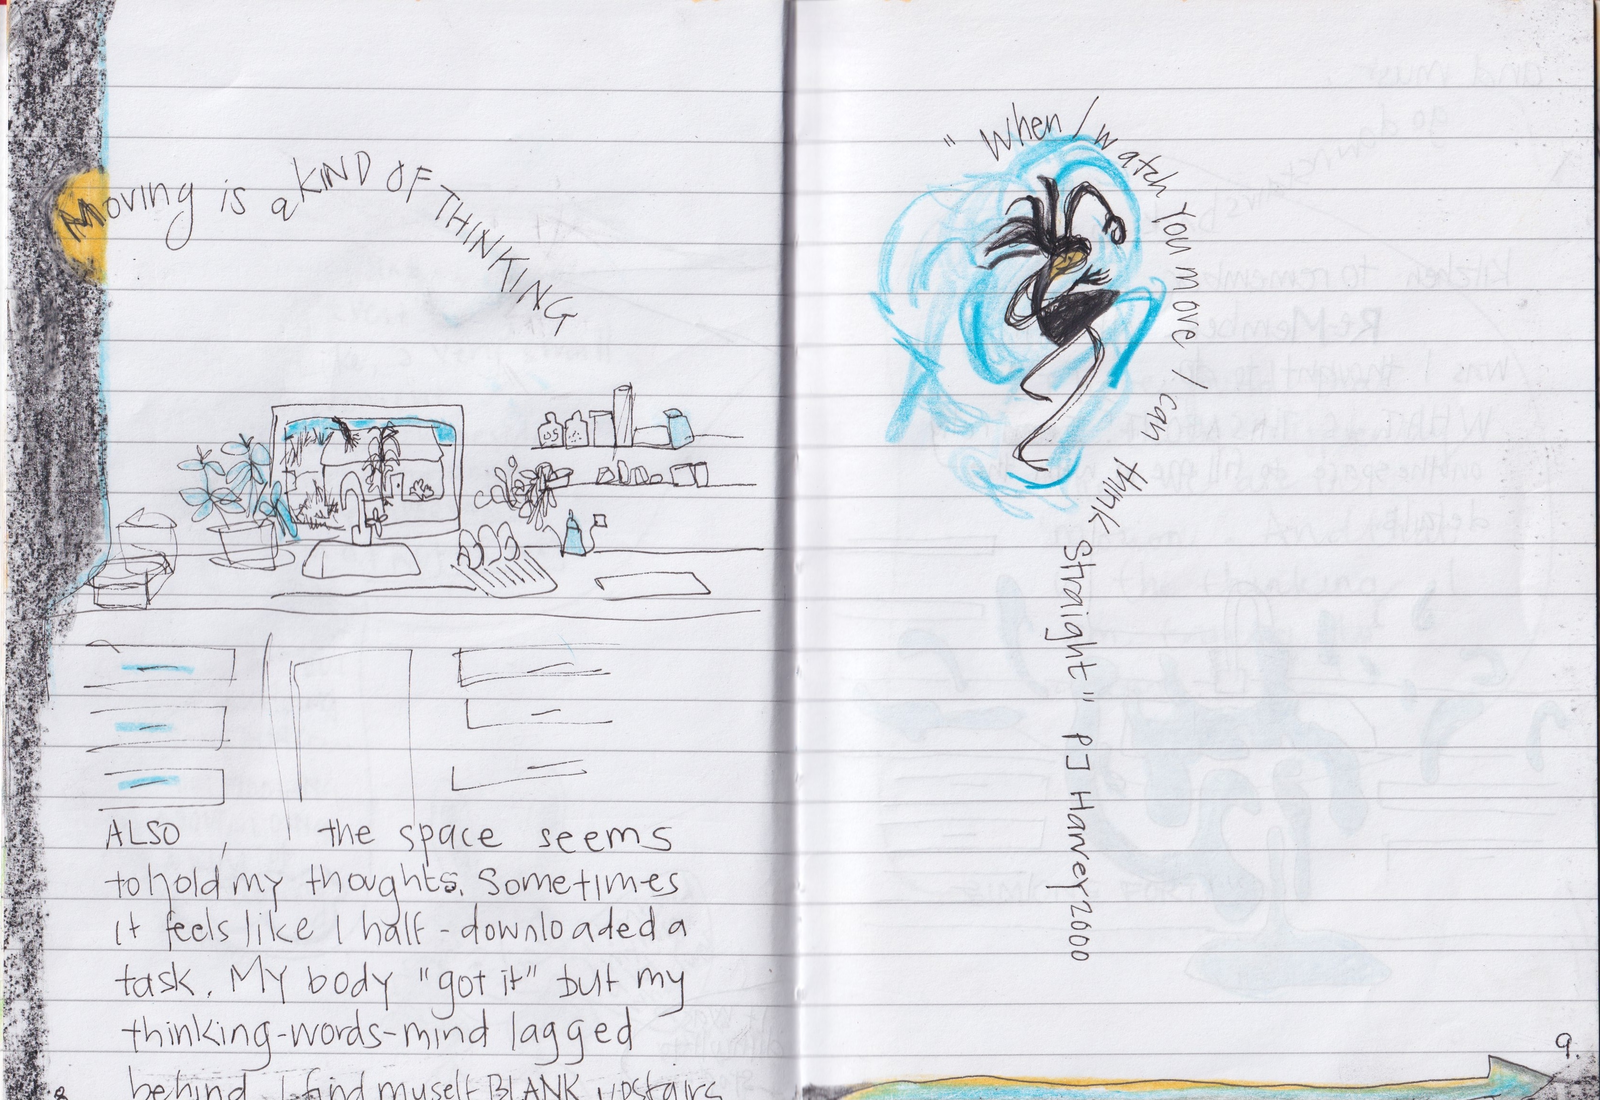 Moving is a KIND OF THINKING
ALSO, the space seems
to hold my thoughts. Sometimes
it feels like I half-downloaded a
task. My body "got it" but my
thinking-words-mind lagged
behind. I find myself BLANK upstairs
8
"When I watch You move I can think Straight" PJ Harvey 2000
9.